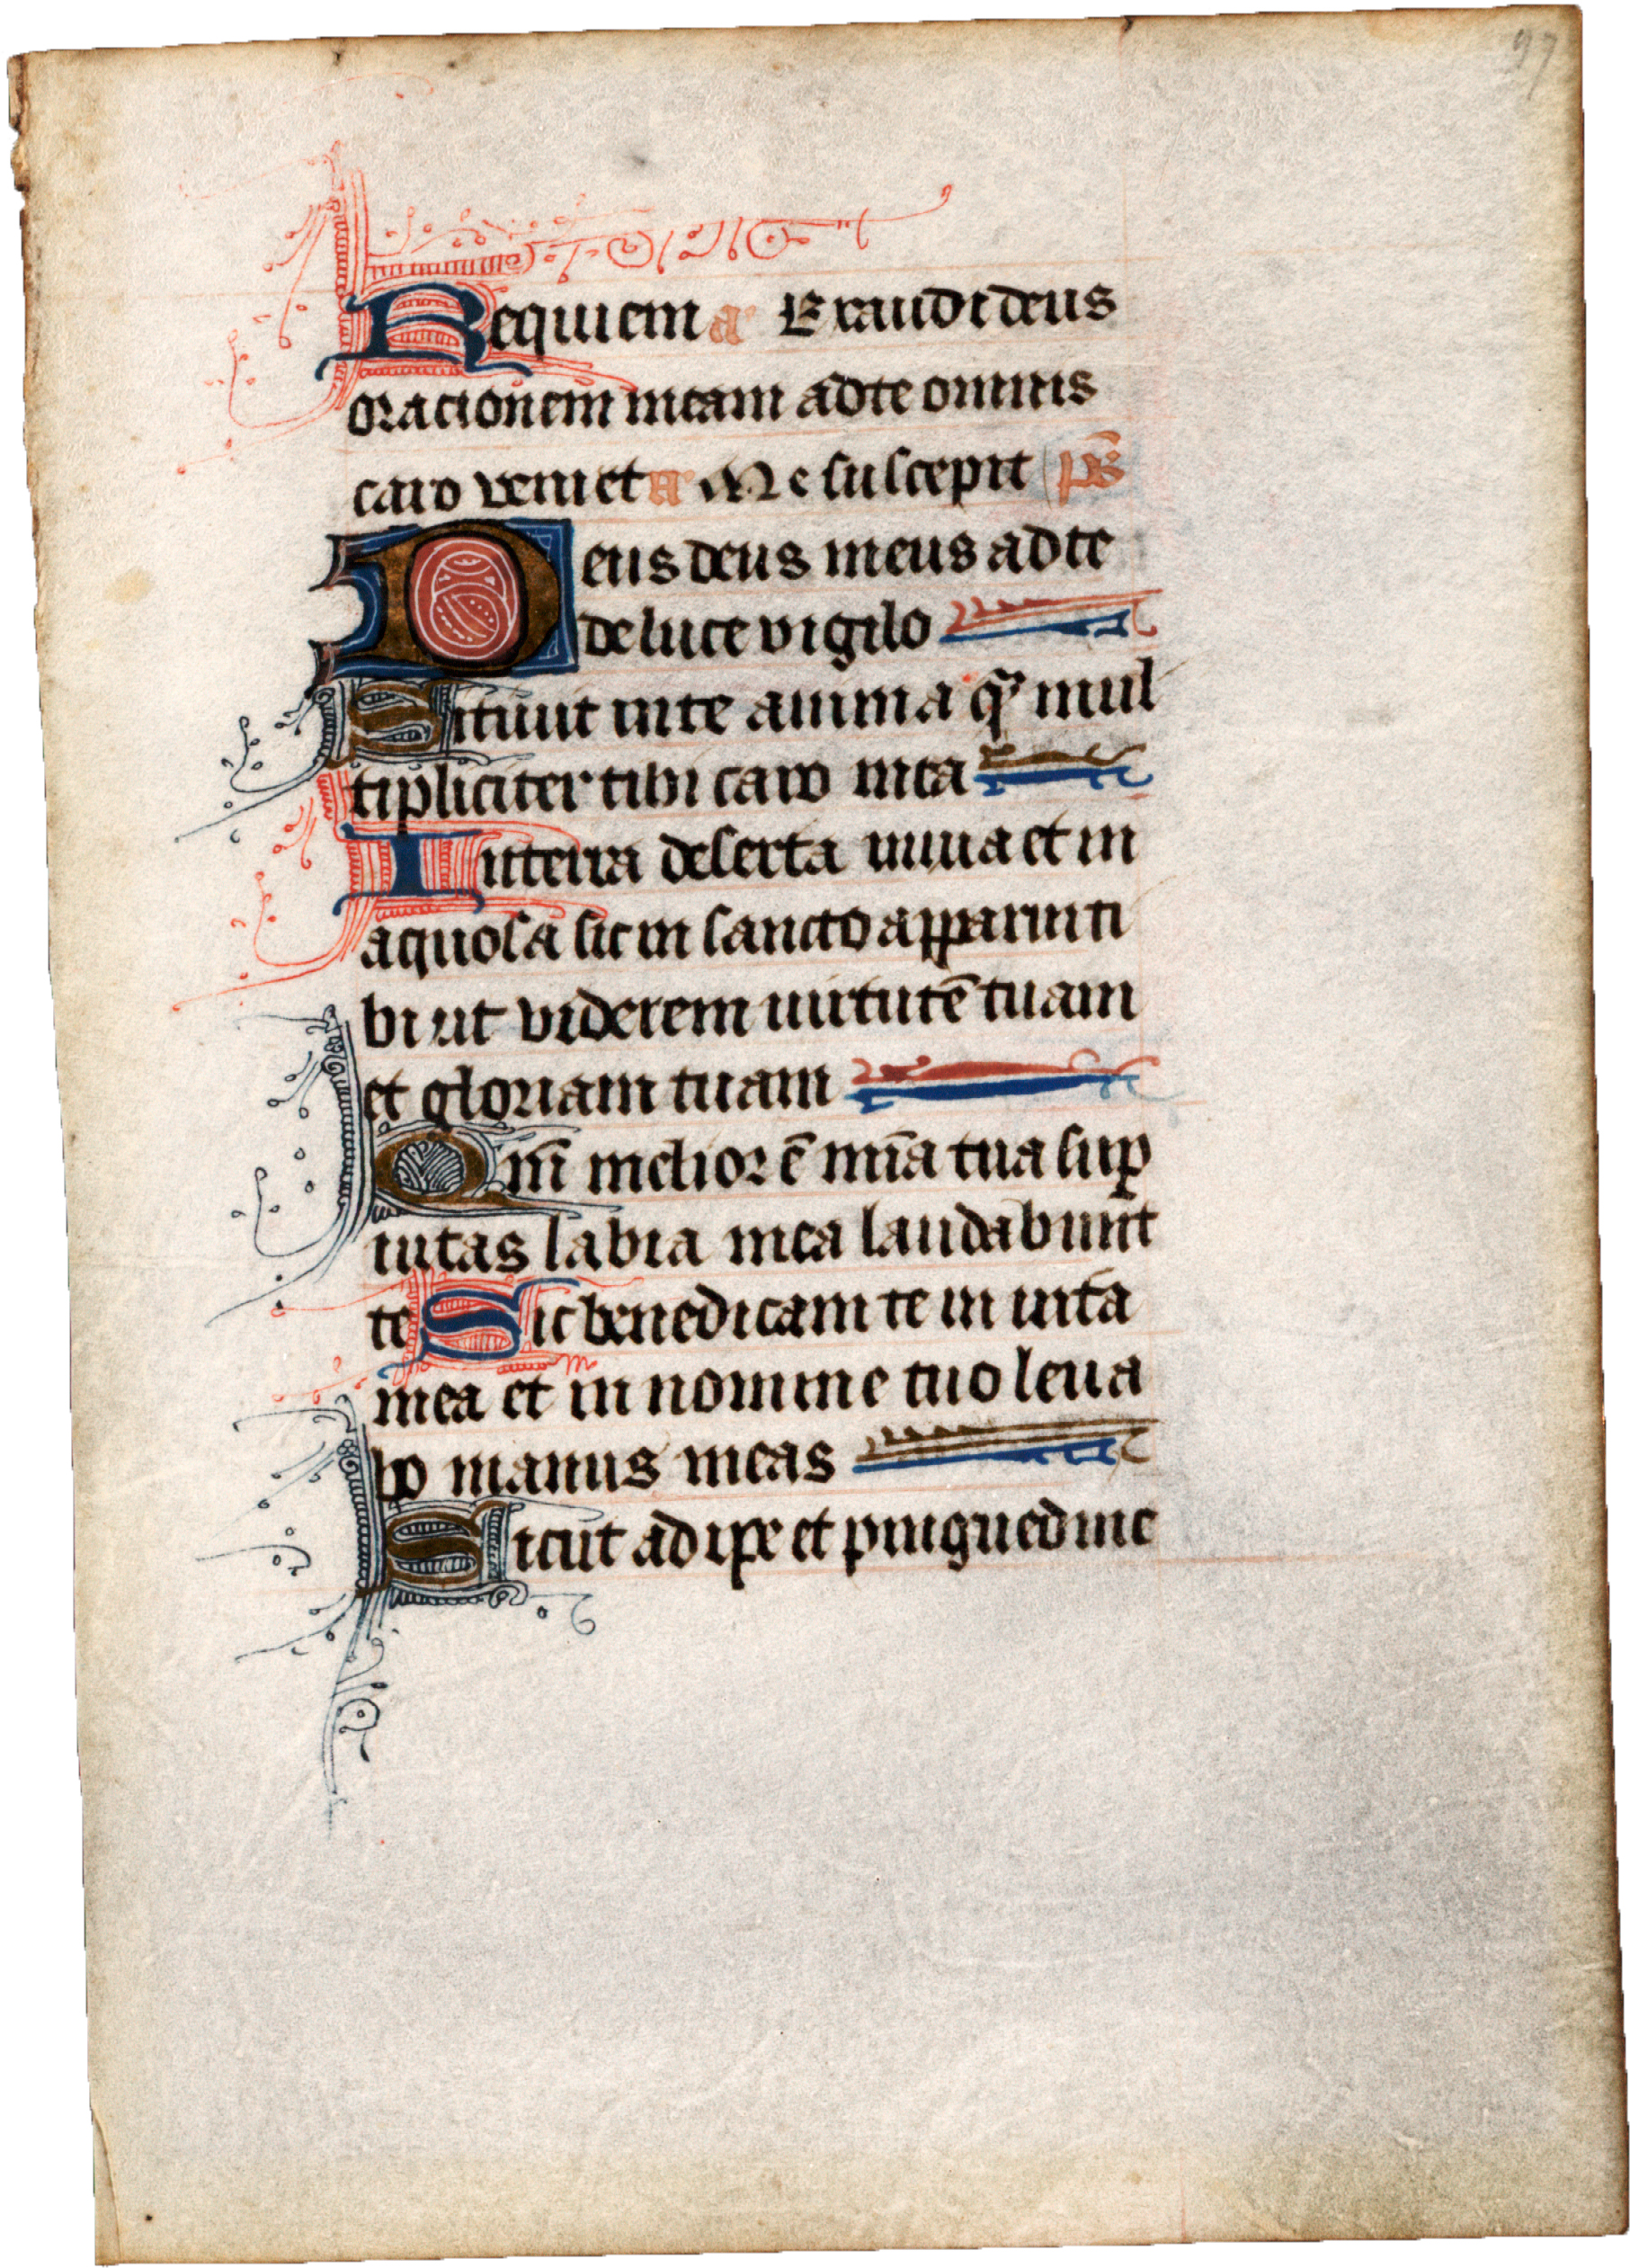 97
Requiem a Exaudi deus
oracionem meam ad te omnis
caro veniet a Me suscepit ps̄
Deus deus meus ad te
de luce vigilo
Sitiuit in te anima qͣ mul
tipliciter tibi caro mea
In terra deserta inuia et in
aquosa sic in sancto apparui ti
bi ut viderem uirtutē tuam
et gloriam tuam
Qm̄ melior ē mīa tua suꝑ
uitas labia mea laudabunt
te Sic benedicam te in uita
mea et in nomine tuo leua
bo manus meas
Sicut adipe et pinguedine